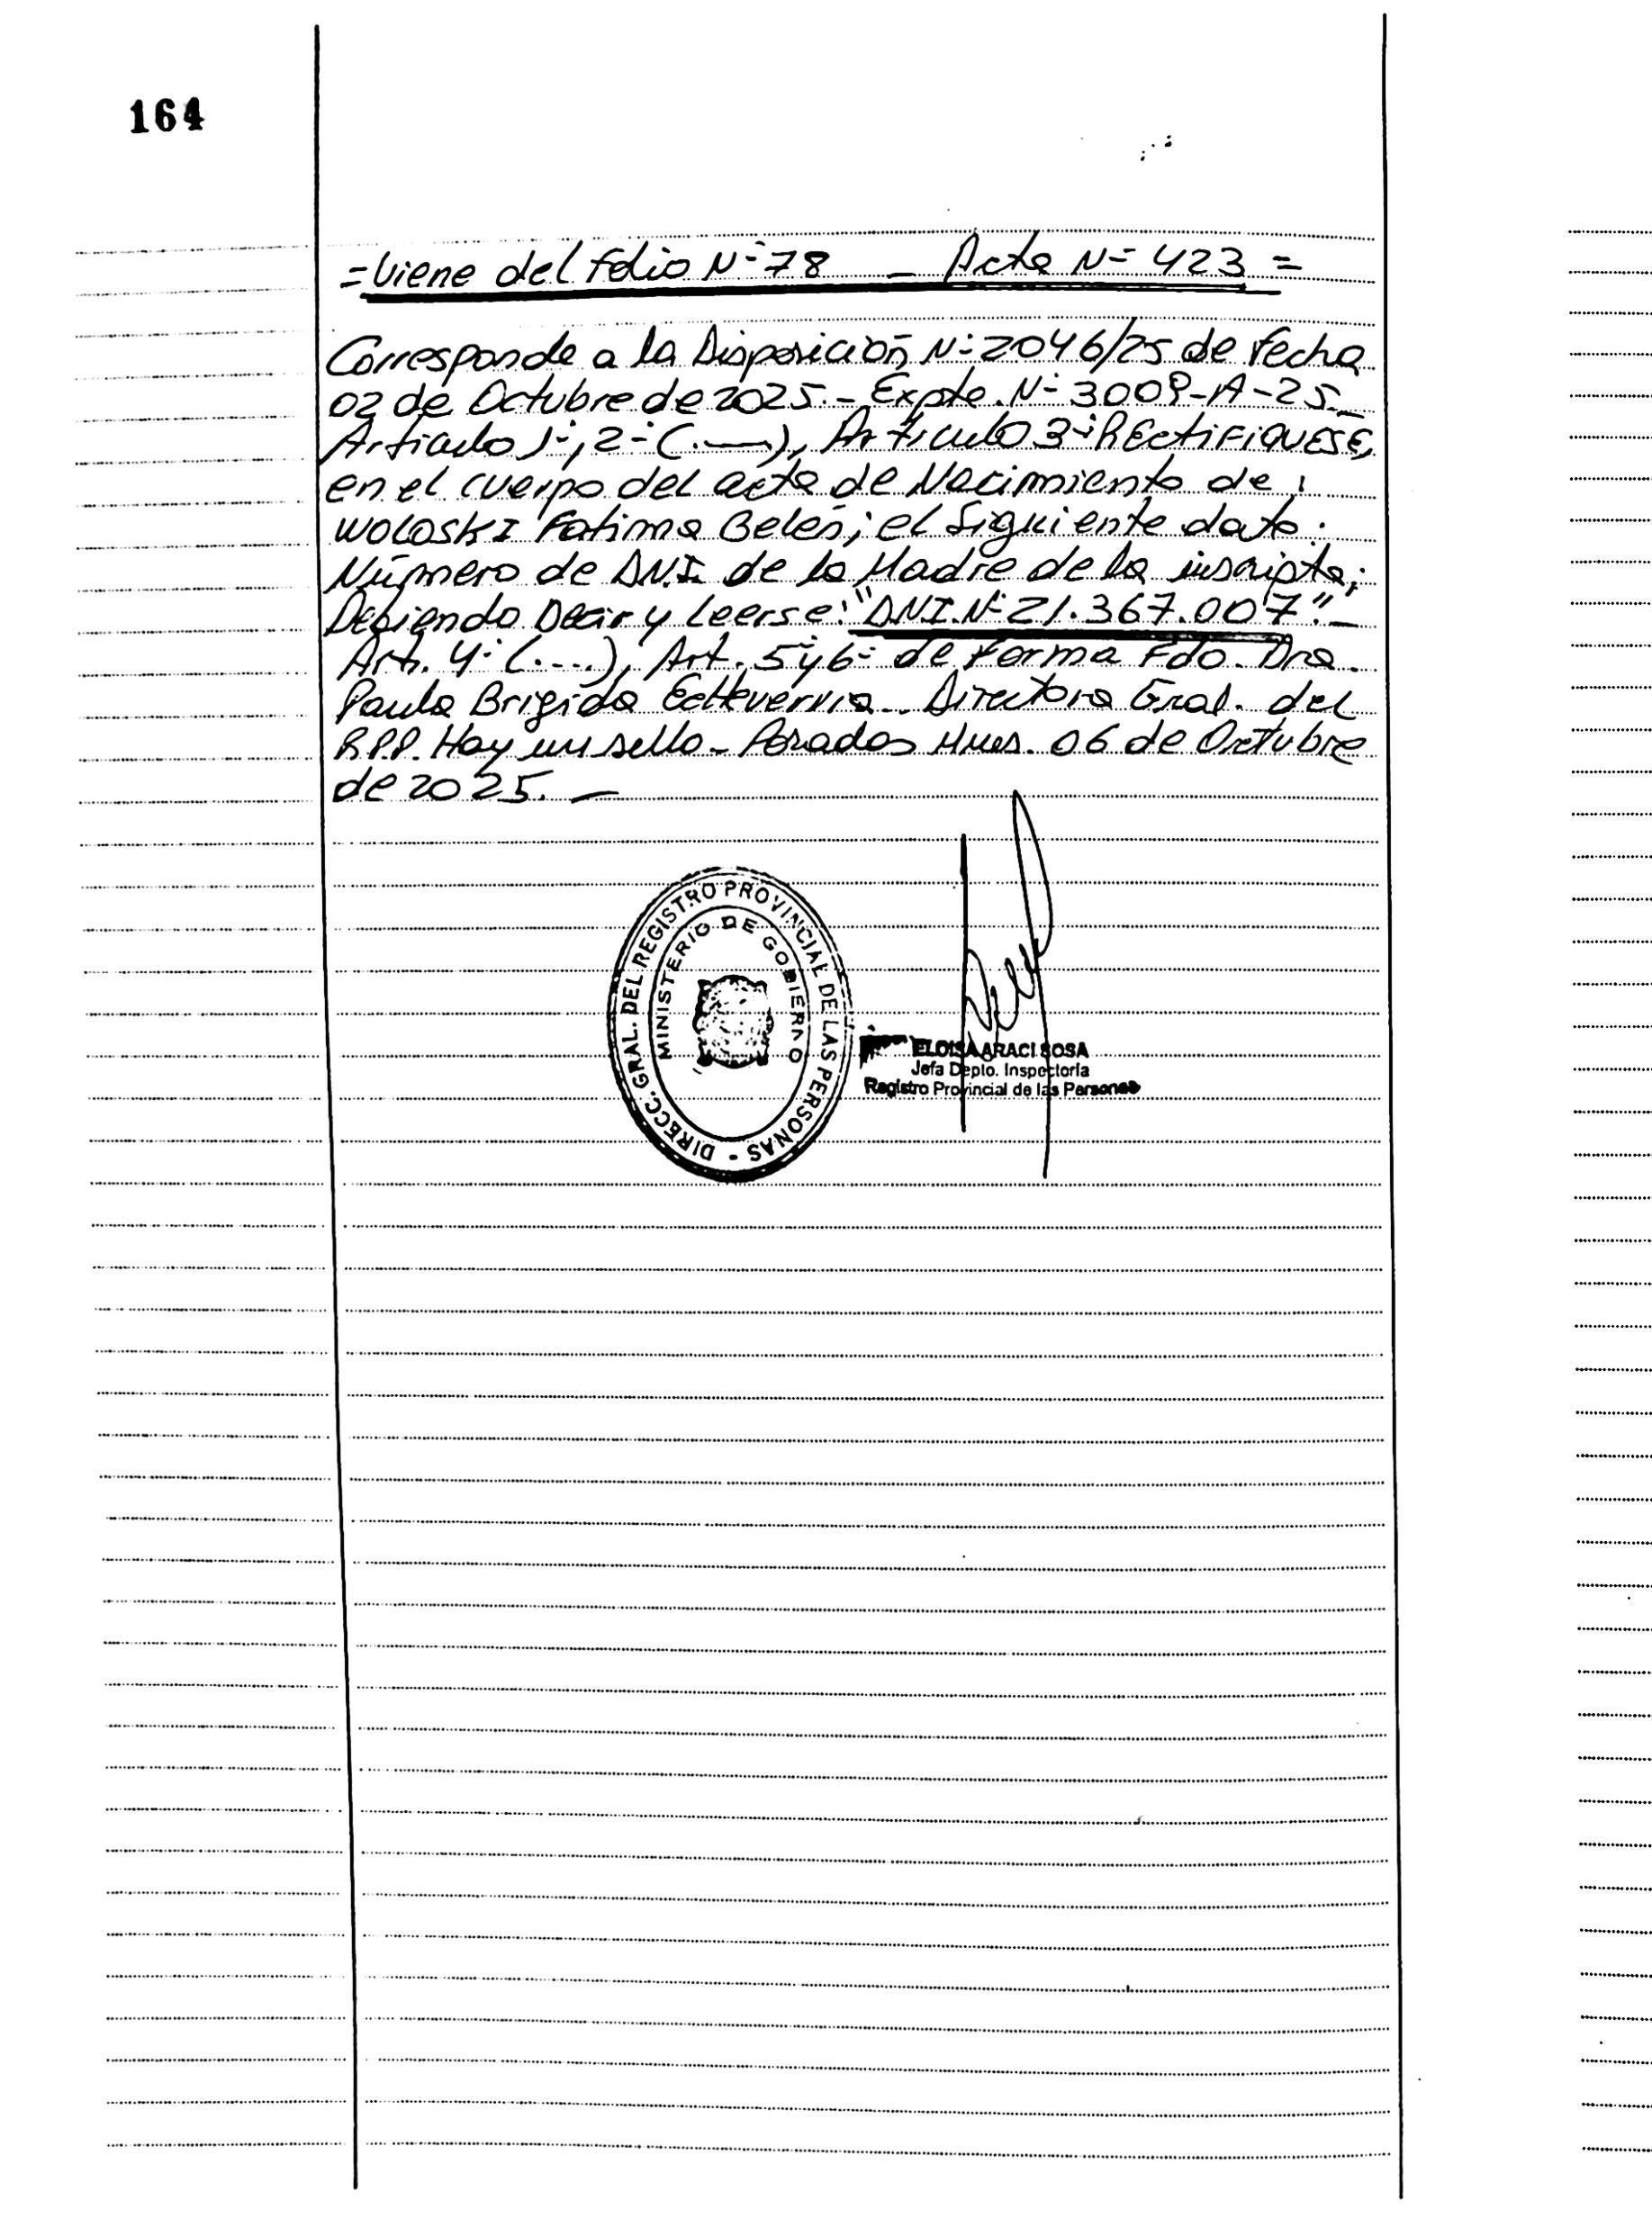 164
=Viene del Folio Nº 78 _ Acta Nº 423=
Corresponde a la Disposición Nº 2046/25 de Fecha
02 de Octubre de 2025.- Expte. Nº 3009-A-25._
Articulo 1º, 2º (.__), Articulo 3º RECTIFIQUESE,
en el cuerpo del acta de Nacimiento de:
WOLOSKI Fatima Belén; el Siguiente dato:
Número de D.N.I. de la Madre de la inscripta;
Debiendo Decir y Leerse: "D.N.I. Nº 21.367.007"._
Art. 4º (....), Art. 5 y 6º de Forma Fdo. Dra.
Paula Brigida Echeverria _ Directora Gral. del
R.P.P. Hay un sello - Posadas Mnes. 06 de Octubre
de 2025. _
DIRECC. GRAL. DEL REGISTRO PROVINCIAL DE LAS PERSONAS -
MINISTERIO DE GOBIERNO
ELOISA ARACI SOSA
Jefa Depto. Inspectoría
Registro Provincial de las Personas